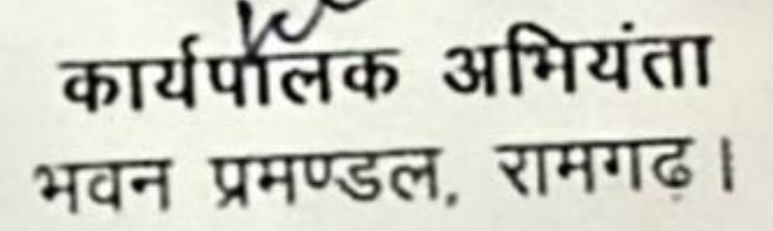 कार्यपालक अभियंता
भवन प्रमण्डल, रामगढ़।